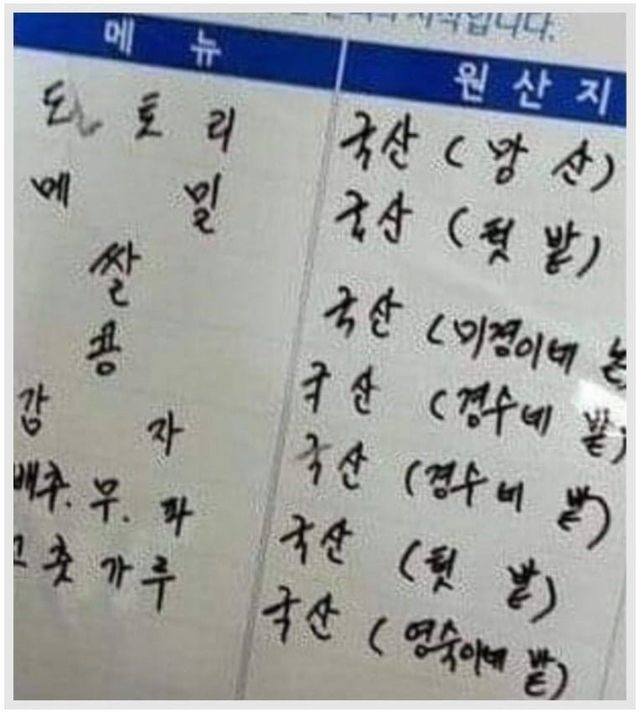 시작입니다.
메뉴 원산지
도토리 국산 (앞산)
메밀 국산 (텃밭)
쌀 국산 (미경이네 논)
콩 국산 (경수네 밭)
감자 국산 (경수네 밭)
배추. 무. 파 국산 (텃밭)
고춧가루 국산 (영숙이네 밭)